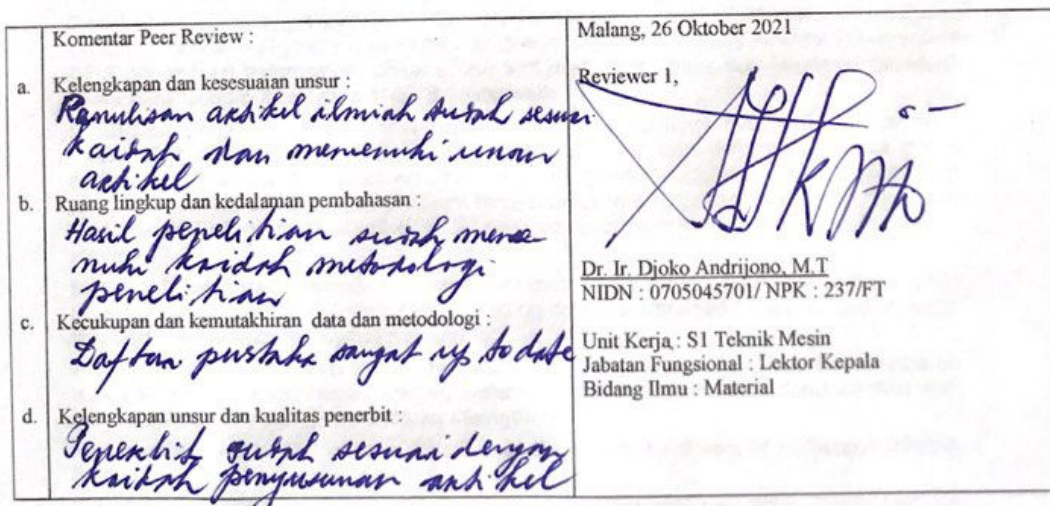 Komentar Peer Review :
a. Kelengkapan dan kesesuaian unsur :
Penulisan artikel ilmiah sudah sesuai
kaidah dan memenuhi unsur
artikel
b. Ruang lingkup dan kedalaman pembahasan :
Hasil penelitian sudah meme
nuhi kaidah metodologi
penelitian
c. Kecukupan dan kemutakhiran data dan metodologi :
Daftar pustaka sangat up to date
d. Kelengkapan unsur dan kualitas penerbit :
Penerbit sudah sesuai dengan
kaidah penyusunan artikel
Malang, 26 Oktober 2021
Reviewer 1,
Dr. Ir. Djoko Andrijono, M.T
NIDN : 0705045701/ NPK : 237/FT
Unit Kerja : S1 Teknik Mesin
Jabatan Fungsional : Lektor Kepala
Bidang Ilmu : Material